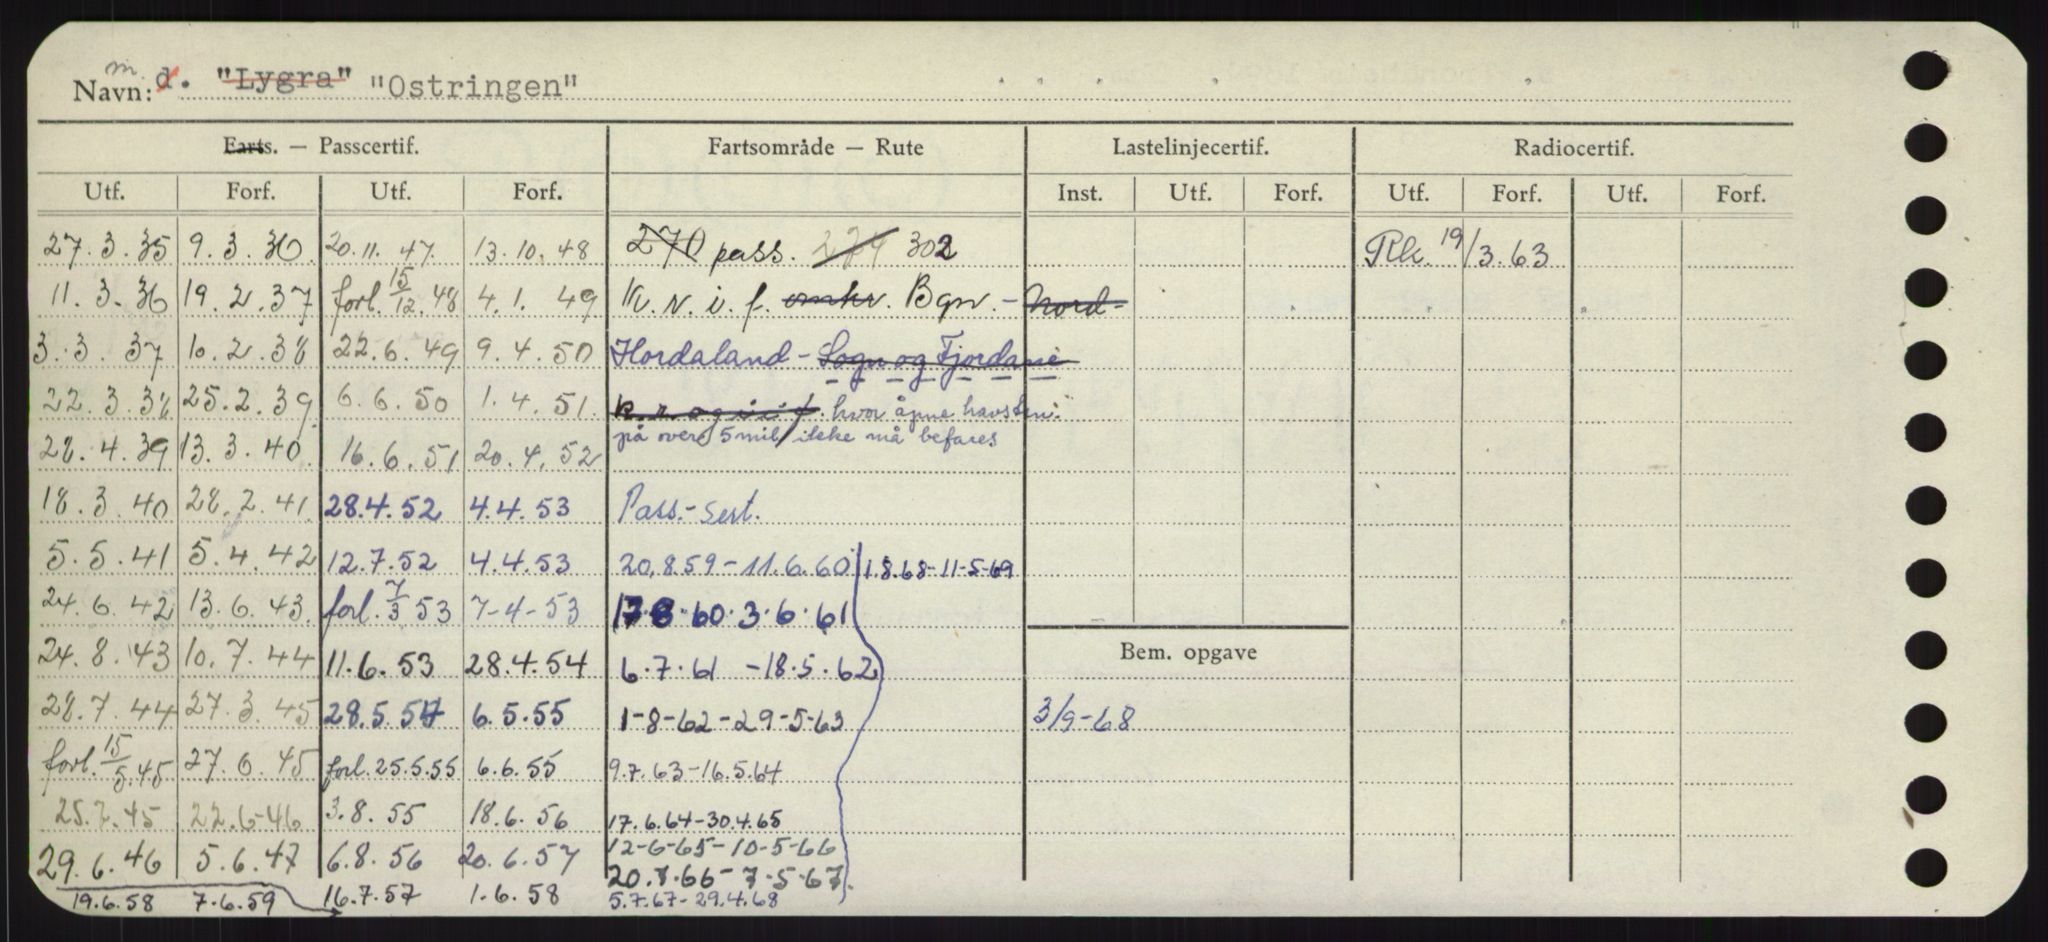 Navn: m. d. "Lygra" "Ostringen"
Farts. — Passcertif. Fartsområde — Rute Lastelinjecertif. Radiocertif.
Utf. Forf. Utf. Forf. Inst. Utf. Forf. Utf. Forf. Utf. Forf.
27.3.35 9.3.36 20.11.47. 13.10.48 270 pass. 274 302 Rk. 19/3.63
11.3.36 19.2.37 forl. 15/12.48 4.1.49 K.r.i.f. omkr. Bgn. - Nord-
3.3.37 10.2.38 22.6.49 9.4.50 Hordaland - Sogn og Fjordane
22.3.38 25.2.39 6.6.50 1.4.51. k.r. og i.i.f. hvor åpne havstrekn.
på over 5 mil ikke må befares
28.4.39 13.3.40. 16.6.51 20.4.52
18.3.40 28.2.41. 28.4.52 4.4.53 Pass.-sert.
5.5.41 5.4.42 12.7.52 4.4.53 20.8.59-11.6.60 1.8.68-11-5-69
24.6.42 13.6.43. forl. 7/3 53 7-4-53 17.8.60.3.6.61
24.8.43 10.7.44 11.6.53 28.4.54 6.7.61 -18.5.62
28.7.44 27.3.45 28.5.54 6.5.55 1-8-62-29-5-63 
Bem. opgave
3/9-68
forl. 15/5.45 27.6.45 forl.25.5.55 6.6.55 9.7.63-16.5.64
25.7.45 22.6-46 3.8.55 18.6.56 17.6.64-30.4.65
29.6.46 5.6.47 6.8.56 20.6.57 12-6-65-10-5-66
20.7.66-7.5.67.
19.6.58 7.6.59 16.7.57 1.6.58 5.7.67-29.4.68